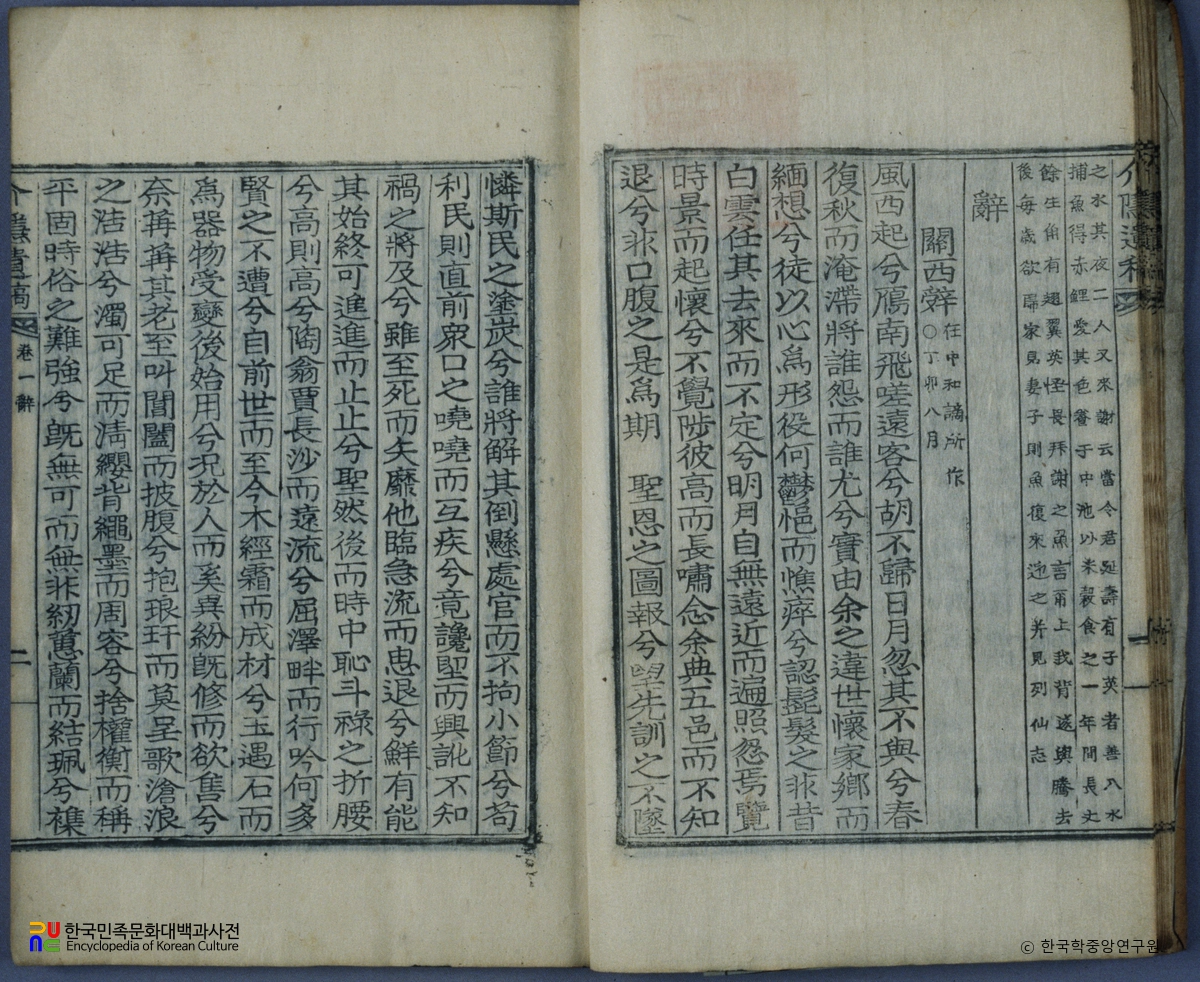 之水其夜二人又來謝云當令君延壽有子英者善入水
捕魚得赤鯉愛其色養于中池以米穀食之一年間長丈
餘生角有翅翼英怪畏拜謝之魚言甭上我背遂與騰去
後每歲欲歸家見妻子則魚復來迎之並見列仙志
辭
關西辭 在中和謫所作
○丁卯八月
風西起兮鴈南飛嗟遠客兮胡不歸日月忽其不與兮春
復秋而淹滯將誰怨而誰尤兮實由余之違世懷家鄕而
緬想兮徒以心爲形役何鬱悒而憔瘁兮認髭髮之非昔
白雲任其去來而不定兮明月自無遠近而遍照忽焉覽
時景而起懷兮不覺陟彼高而長嘯念余典五邑而不知
退兮非口腹之是爲期 聖恩之圖報兮望先訓之不墜
憐斯民之塗炭兮誰將解其倒懸處官而不拘小節兮苟
利民則直前衆口之嘵嘵而互疾兮竟讒堲而興訛不知
禍之將及兮雖至死而矢靡他臨急流而勇退兮鮮有能
其始終可進進而止止兮聖然後而時中恥斗祿之折腰
兮高則高兮陶翁賈長沙而遠流兮屈澤畔而行吟何多
賢之不遭兮自前世而至今木經霜而成材兮玉遇石而
爲器物受變後始用兮况於人而奚異紛旣修而欲售兮
奈苒苒其老至叫閶闔而披腹兮抱琅玕而莫呈歌滄浪
之浩浩兮濁可足而淸纓背繩墨而周容兮捨權衡而稱
平固時俗之難強兮旣無可而無非紉蕙蘭而結珮兮樵
介隱遺稿 卷一 辭 二
한국민족문화대백과사전
Encyclopedia of Korean Culture
© 한국학중앙연구원